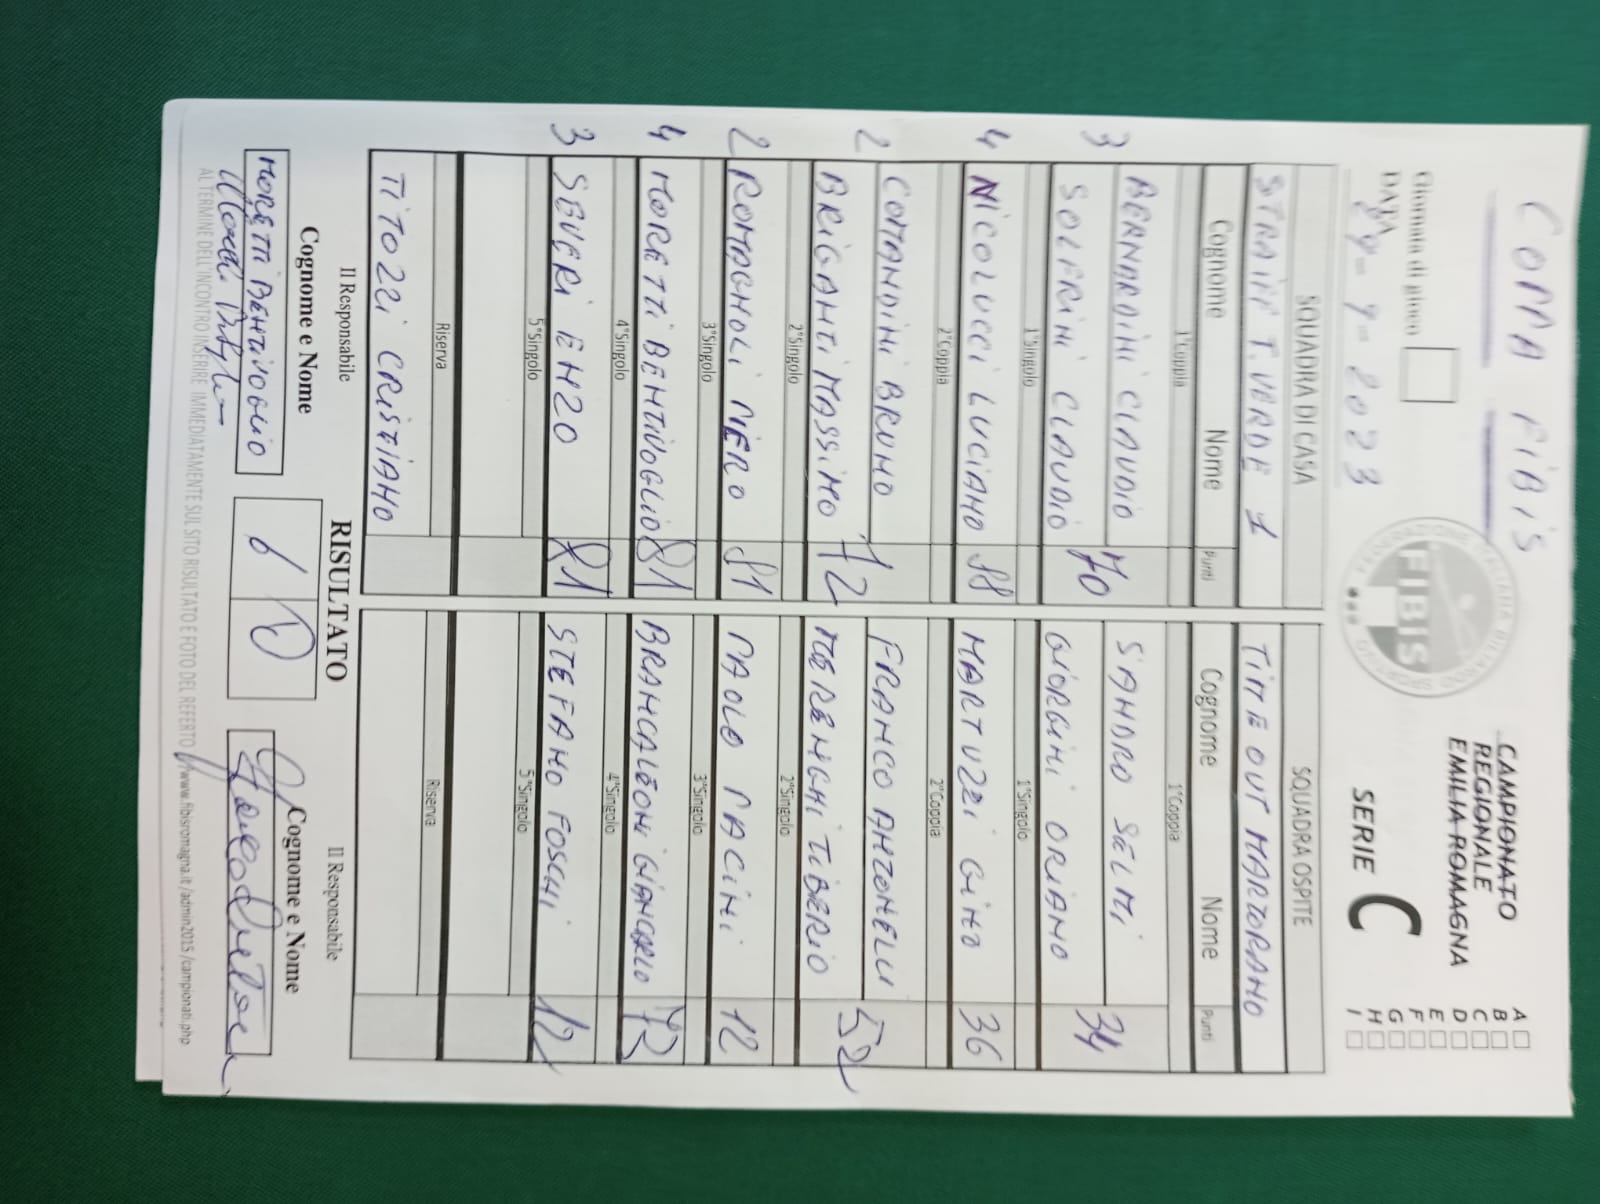 COPPA FIBIS
CAMPIONATO
REGIONALE
EMILIA-ROMAGNA
SERIE C
A
B
C
D
E
F
G
H
I
Giornata di gioco
DATA
2023
FEDERAZIONE ITALIANA BILIARDO SPORTIVO
FIBIS
SQUADRA DI CASA SQUADRA OSPITE
T. VERDE 1 TIME OUT MARTORANO
Cognome Nome Punti Cognome Nome Punti
1°Coppia 1°Coppia
3 BERNARDINI CLAUDIO 70 SANDRO SELMI 34
SOLFRINI CLAUDIO GIORGINI ORIANO
1°Singolo 1°Singolo
4 NICOLUCCI LUCIANO 88 MARTUZZI GINO 36
2°Coppia 2°Coppia
2 COMANDINI BRUNO 72 FRANCO ANTONELLI 52
BRIGANTI MASSIMO MERENGHI TIBERIO
2°Singolo 2°Singolo
2 ROMAGNOLI PIERO 81 PAOLO PACINI 12
3°Singolo 3°Singolo
4 MORETTI BENTIVOGLIO 81 BRANCALEONI GIANCARLO 73
4°Singolo 4°Singolo
3 SEVERI ENZO 81 STEFANO FOSCHI 12
5°Singolo 5°Singolo
Riserva Riserva
TITOZZI CRISTIANO
Il Responsabile RISULTATO Il Responsabile
Cognome e Nome Cognome e Nome
MORETTI BENTIVOGLIO 6 0
AL TERMINE DELL'INCONTRO INSERIRE IMMEDIATAMENTE SUL SITO RISULTATO E FOTO DEL REFERTO //www.fibisromagna.it/admin2015/campionati.php